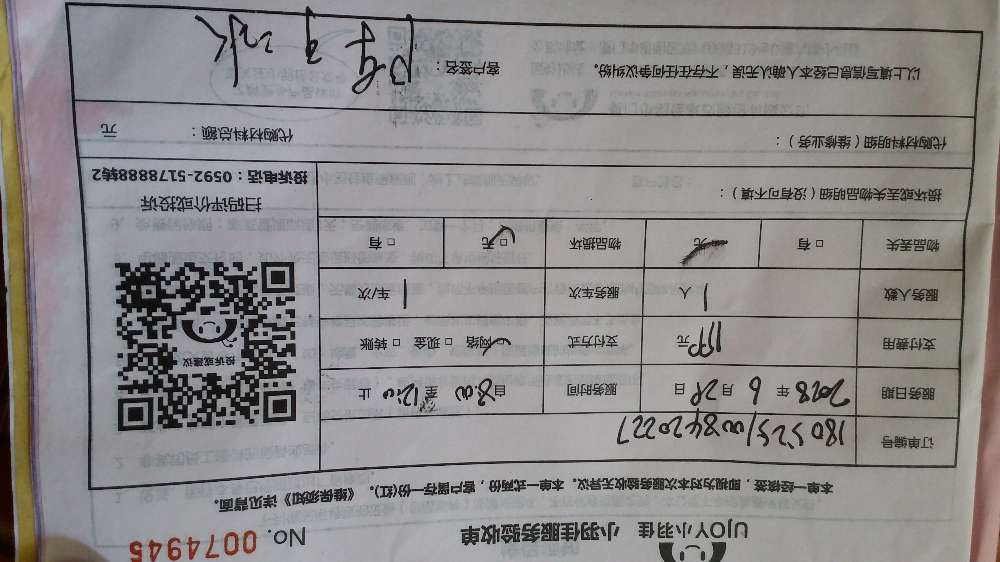 UJOY小羽佳 小羽佳服务验收单 No. 0074945
本单一经签签，即视为对本次服务验收无异议。本单一式两份，客户留存一份(红)。《维保须知》详见背面。
订单编号 1805251008420227
服务日期 2018 年 6 月 28 日 服务时间 自 8:00 至 12:00 止
支付费用 元 支付方式 网络 □ 现金 □ 转账
服务人数 1 人 服务车次 1 车/次
物品丢失 □ 有 □ 无 物品损坏 □ 无 □ 有
投诉或建议
损坏或丢失物品明细（没有可不填）：
扫码评价或投诉
代购材料明细（维修业务）： 代购材料总额： 元
投诉电话：0592-5178888转2
以上填写信息已经本人确认无误，不存在任何争议纠纷。 客户签名：